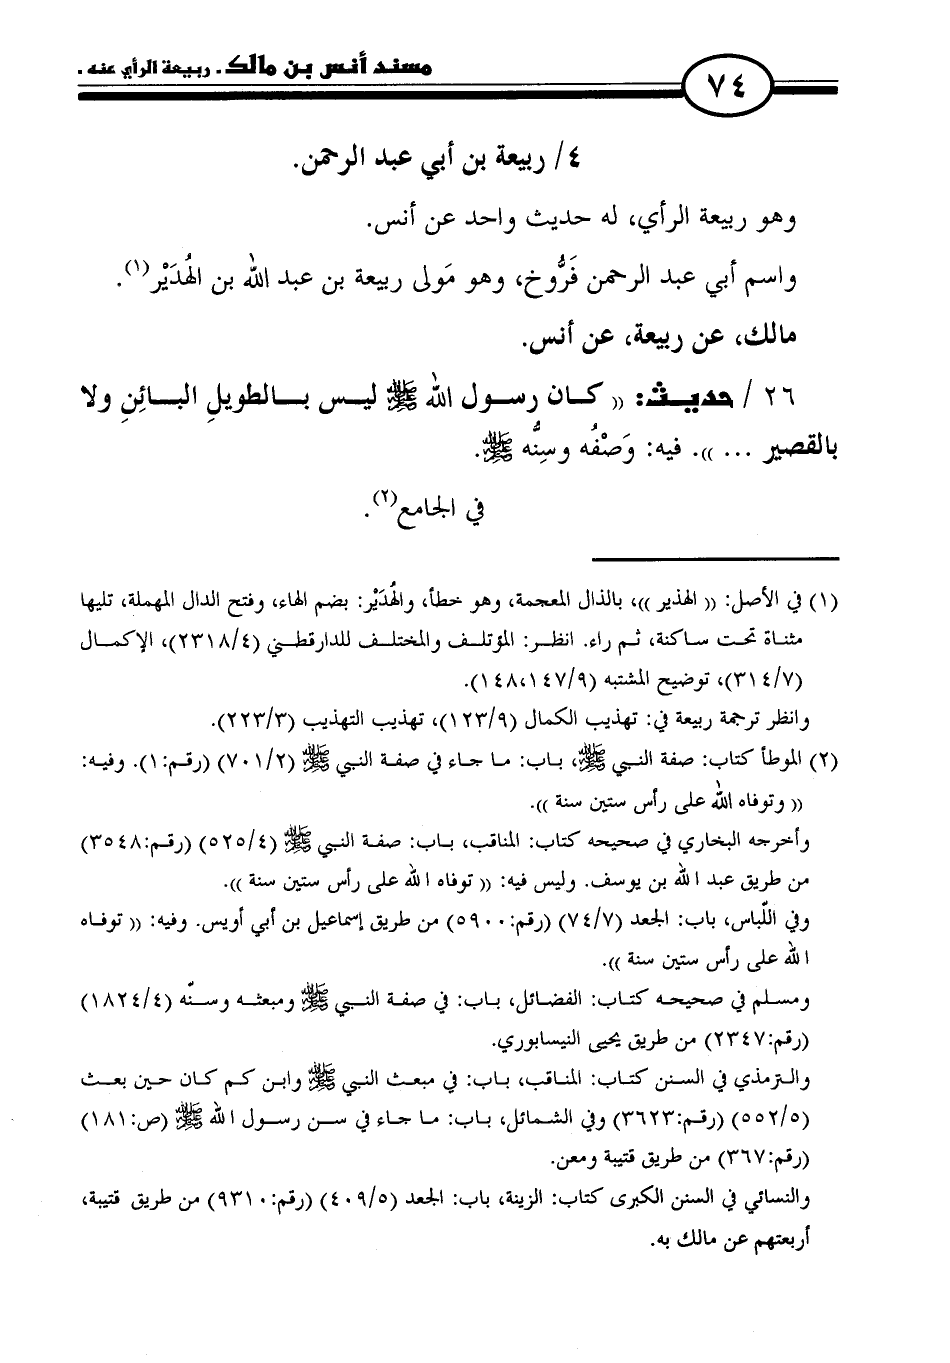 ٧٤
مسند أنس بن مالك. ربيعة الرأي عنه.
٤/ ربيعة بن أبي عبد الرحمن.
وهو ربيعة الرأي، له حديث واحد عن أنس.
واسم أبي عبد الرحمن فَرُّوخ، وهو مَولى ربيعة بن عبد الله بن الهُدَيْر(١).
مالك، عن ربيعة، عن أنس.
٢٦ / حديث: (( كان رسول الله ﷺ ليس بالطويلِ البائِنِ ولا
بالقصير ... )). فيه: وَصْفُه وسِنُّه ﷺ.
في الجامع(٢).
(١) في الأصل: (( الهذير ))، بالذال المعجمة، وهو خطأ، والهُدَيْر: بضم الهاء، وفتح الدال المهملة، تليها
مثناة تحت ساكنة، ثم راء. انظر: المؤتلف والمختلف للدارقطني (٢٣١٨/٤)، الإكمال
(٣١٤/٧)، توضيح المشتبه (١٤٨،١٤٧/٩).
وانظر ترجمة ربيعة في: تهذيب الكمال (١٢٣/٩)، تهذيب التهذيب (٢٢٣/٣).
(٢) الموطأ كتاب: صفة النبي ﷺ، باب: ما جاء في صفة النبي ﷺ (٧٠١/٢) (رقم:١). وفيه:
(( وتوفاه الله على رأس ستين سنة )).
وأخرجه البخاري في صحيحه كتاب: المناقب، باب: صفة النبي ﷺ (٥٢٥/٤) (رقم:٣٥٤٨)
من طريق عبد الله بن يوسف. وليس فيه: (( توفاه الله على رأس ستين سنة )).
وفي اللّباس، باب: الجعد (٧٤/٧) (رقم:٥٩٠٠) من طريق إسماعيل بن أبي أويس. وفيه: (( توفاه
الله على رأس ستين سنة )).
ومسلم في صحيحه كتاب: الفضائل، باب: في صفة النبي ﷺ ومبعثه وسنّه (١٨٢٤/٤)
(رقم:٢٣٤٧) من طريق يحيى النيسابوري.
والترمذي في السنن كتاب: المناقب، باب: في مبعث النبي ﷺ وابن كم كان حين بعث
(٥٥٢/٥) (رقم:٣٦٢٣) وفي الشمائل، باب: ما جاء في سن رسول الله ﷺ (ص:١٨١)
(رقم:٣٦٧) من طريق قتيبة ومعن.
والنسائي في السنن الكبرى كتاب: الزينة، باب: الجعد (٤٠٩/٥) (رقم:٩٣١٠) من طريق قتيبة،
أربعتهم عن مالك به.